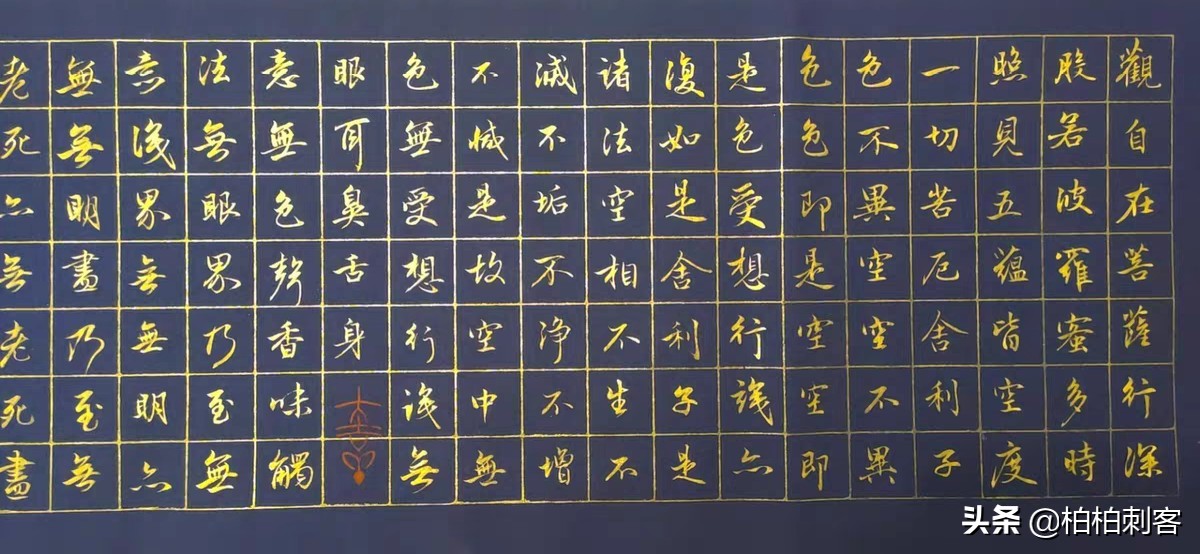 觀自在菩薩行深
般若波羅蜜多時
照見五蘊皆空度
一切苦厄舍利子
色不異空空不異
色色即是空空即
是色受想行識亦
復如是舍利子是
諸法空相不生不
滅不垢不淨不增
不減是故空中無
色無受想行識無
眼耳鼻舌身
意無色聲香味觸
法無眼界乃至無
意識界無無明亦
無無明盡乃至無
老死亦無老死盡
头条 @柏柏刺客